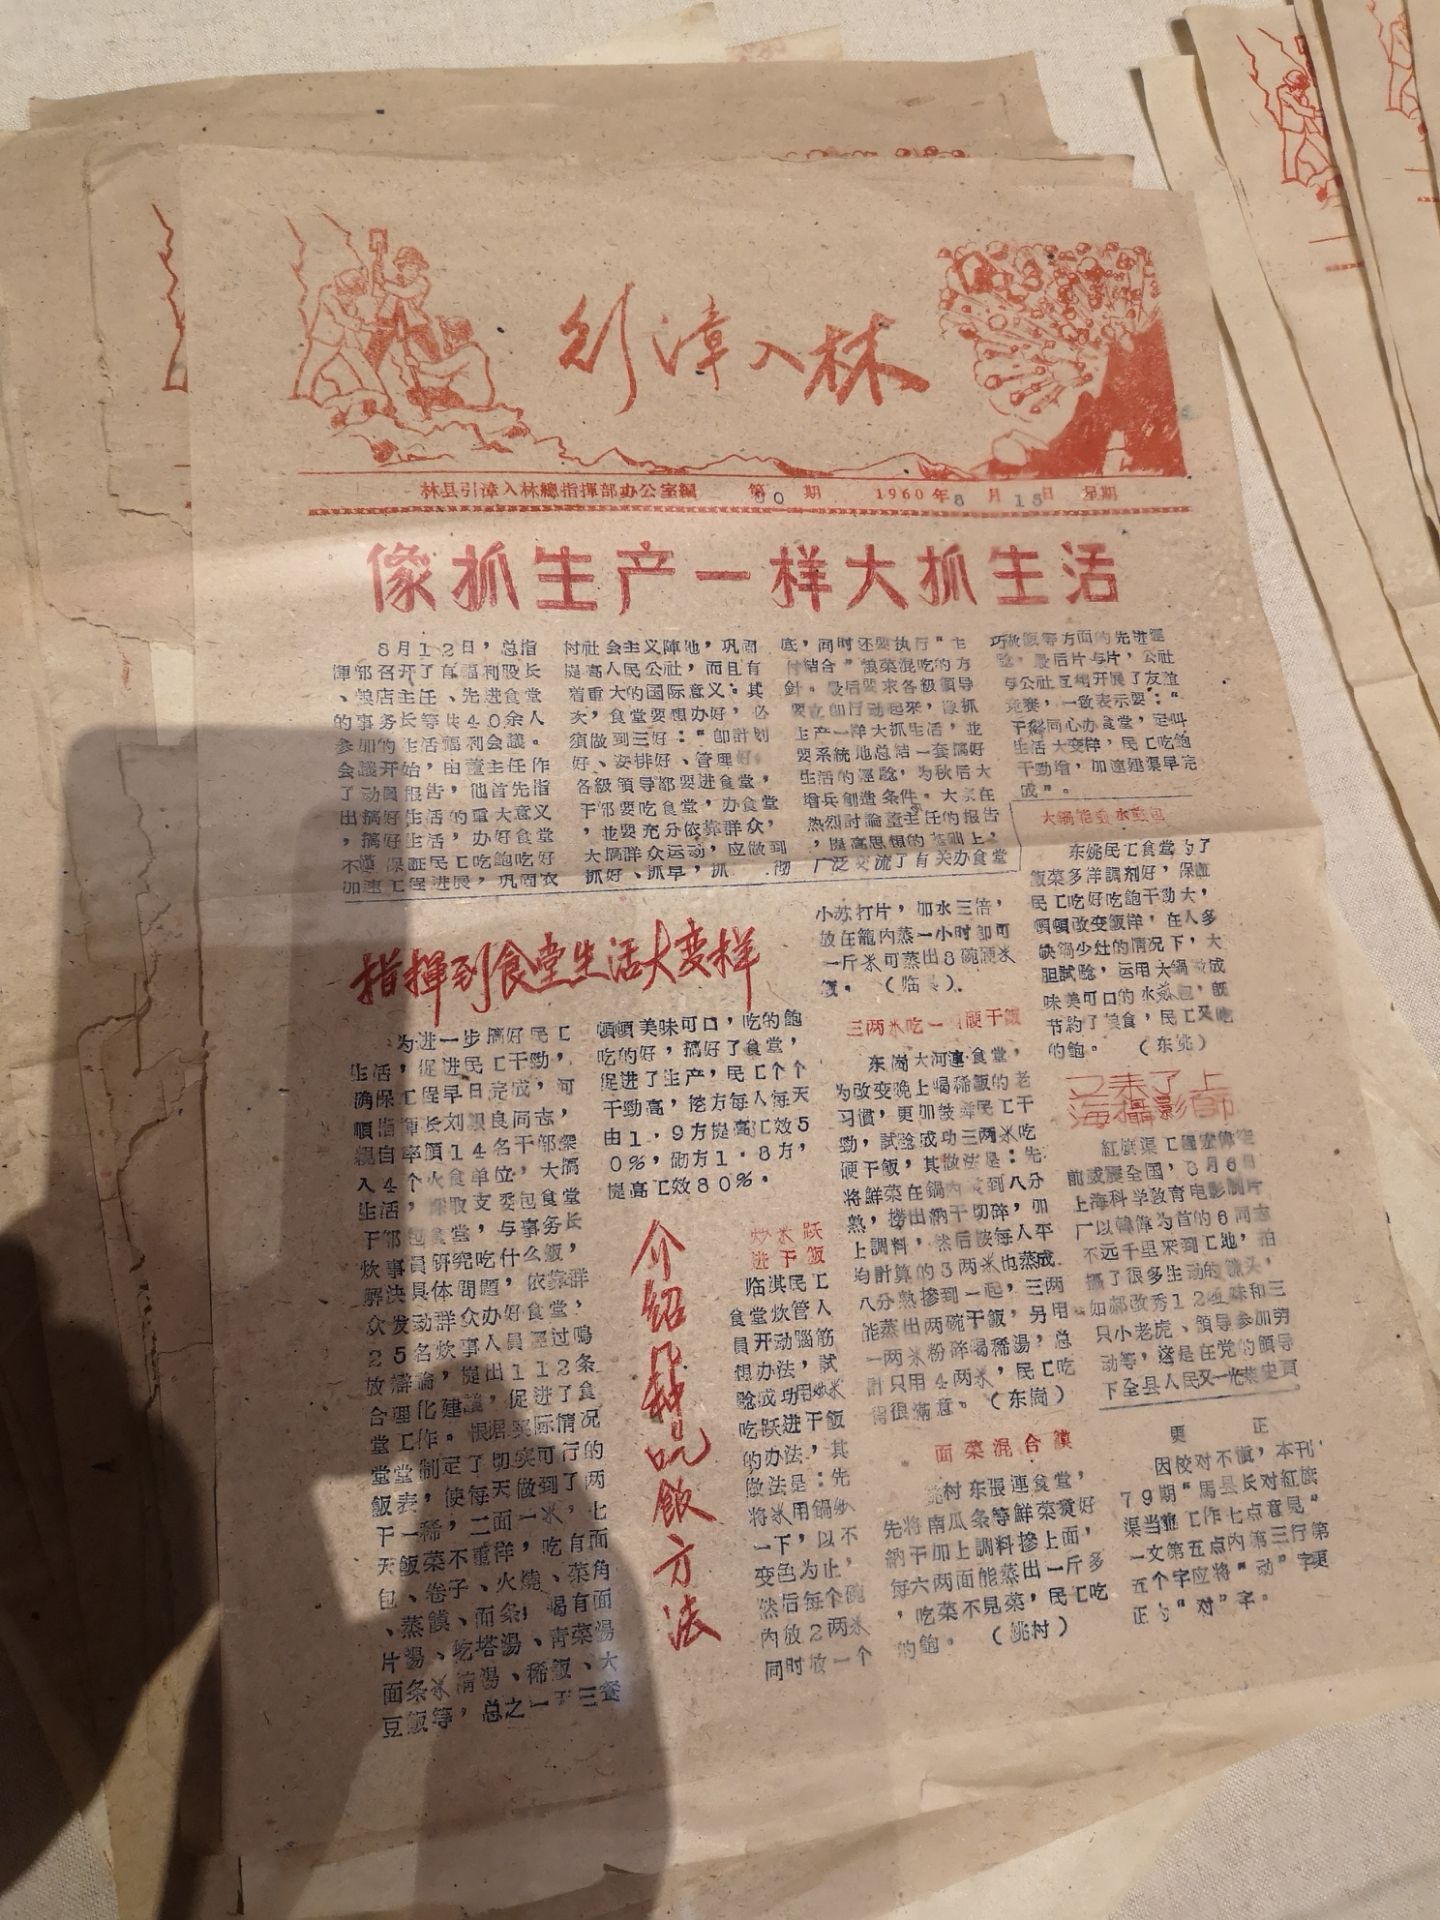 引漳入林
林县引漳入林總指揮部办公室編 第80期 1960年8月15日 星期
像抓生产一样大抓生活
8月12日，总指
揮部召开了有福利股长
、粮店主任、先进食堂
的事务长等共40余人
参加的生活福利会議。
会議开始，由董主任作
了动員报告，他首先指
出搞好生活的重大意义
，搞好生活，办好食堂
不僅保証民工吃飽吃好
加速工程进展，巩固农
村社会主义陣地，巩固
提高人民公社，而且有
着重大的国际意义；其
次，食堂要想办好，必
須做到三好："即計划
好、安排好、管理好，
各級領导都要进食堂，
干部要吃食堂，办食堂
，並要充分依靠群众，
大搞群众运动，应做到
抓好、抓早，抓彻
底，同时还要执行"
結合"粮菜混吃的方
針。最后要求各級領导
要立即行动起来，像抓
生产一样大抓生活，並
要系統地总結一套搞好
生活的經驗，为秋后大
增兵創造条件。大家在
热烈討論董主任的报告
，提高思想的基础上，
广泛交流了有关办食堂
巧做飯等方面的先进經
驗，最后片与片，公社
与公社互相开展了友誼
竞賽，一致表示要："
干群同心办食堂，定叫
生活大变样，民工吃飽
干勁增，加速建渠早完
成"。
大鍋能蒸水煎包
东姚民工食堂为了
飯菜多洋調剂好，保証
民工吃好吃飽干勁大，
頓頓改变飯样，在人多
缺鍋少灶的情况下，大
胆試驗，运用大鍋做成
味美可口的水煎包，旣
节約了粮食，民工又吃
的飽。 （东姚）
指揮到食堂生活大变样
为进一步搞好民工
生活，促进民工干勁，
确保工程早日完成，河
順指揮长刘银良同志，
親自率領14名干部深
入4个火食单位，大搞
生活，採取支委包食堂
干部包食堂，与事务长
炊事員研究吃什么飯，
解决具体問題，依靠群
众发动群众办好食堂，
25名炊事人員經过鳴
放辯論，提出112条
合理化建議，促进了食
堂工作。根据实际情况
堂堂制定了切实可行的
飯表，使每天做到了两
干一稀，二面一米，七
天飯菜不重样，吃有面
包、卷子、火燒、菜角
、蒸饃、面条；喝有面
片湯、疙瘩湯、青菜湯
面条米清湯、稀飯、大
豆飯等，总之一天三餐
頓頓美味可口，吃的飽
吃的好，搞好了食堂，
促进了生产，民工个个
干勁高，挖方每人每天
由1.9方提高工效5
0%，砌方1.8方，
提高工效80%。
介紹几种吃飯方法
炒米跃
进干飯
临淇民工
食堂炊管人
員开动腦筋
想办法，試
驗成功用炒米
吃跃进干飯
的办法，其
做法是：先
将米用鍋炒
一下，以不
变色为止，
然后每个碗
内放2两米
同时放一个
小苏打片，加水三倍，
放在籠内蒸一小时即可
一斤米可蒸出8碗硬米
飯。 （临淇）
三两米吃一頓硬干飯
东崗大河連食堂，
为改变晚上喝稀飯的老
习慣，更加鼓舞民工干
勁，試驗成功三两米吃
硬干飯，其做法是：先
将鮮菜在鍋内煮到八分
熟，捞出納干切碎，加
上調料，然后按每人平
均計算的3两米也蒸成
八分熟摻到一起，三两
能蒸出两碗干飯，另用
一两米粉碎喝稀湯，总
計只用4两米，民工吃
得很滿意。（东崗）
面菜混合饃
姚村东張連食堂，
先将南瓜条等鮮菜煮好
納干加上調料摻上面，
每六两面能蒸出一斤多
，吃菜不見菜，民工吃
的飽。 （姚村）
又来了上
海攝影師
紅旗渠工程宏偉空
前威震全国，8月6日
上海科学教育电影制片
厂以韓偉为首的6同志
不远千里来到工地，拍
攝了很多生动的鏡头，
如郝改秀12姐妹和三
只小老虎、領导参加劳
动等，这是在党的領导
下全县人民又一光荣史頁
更 正
因校对不愼，本刊
79期"馬县长对紅旗
渠当前工作七点意見"
一文第五点内第三行第
五个字应将"动"字更
正为"对"字。